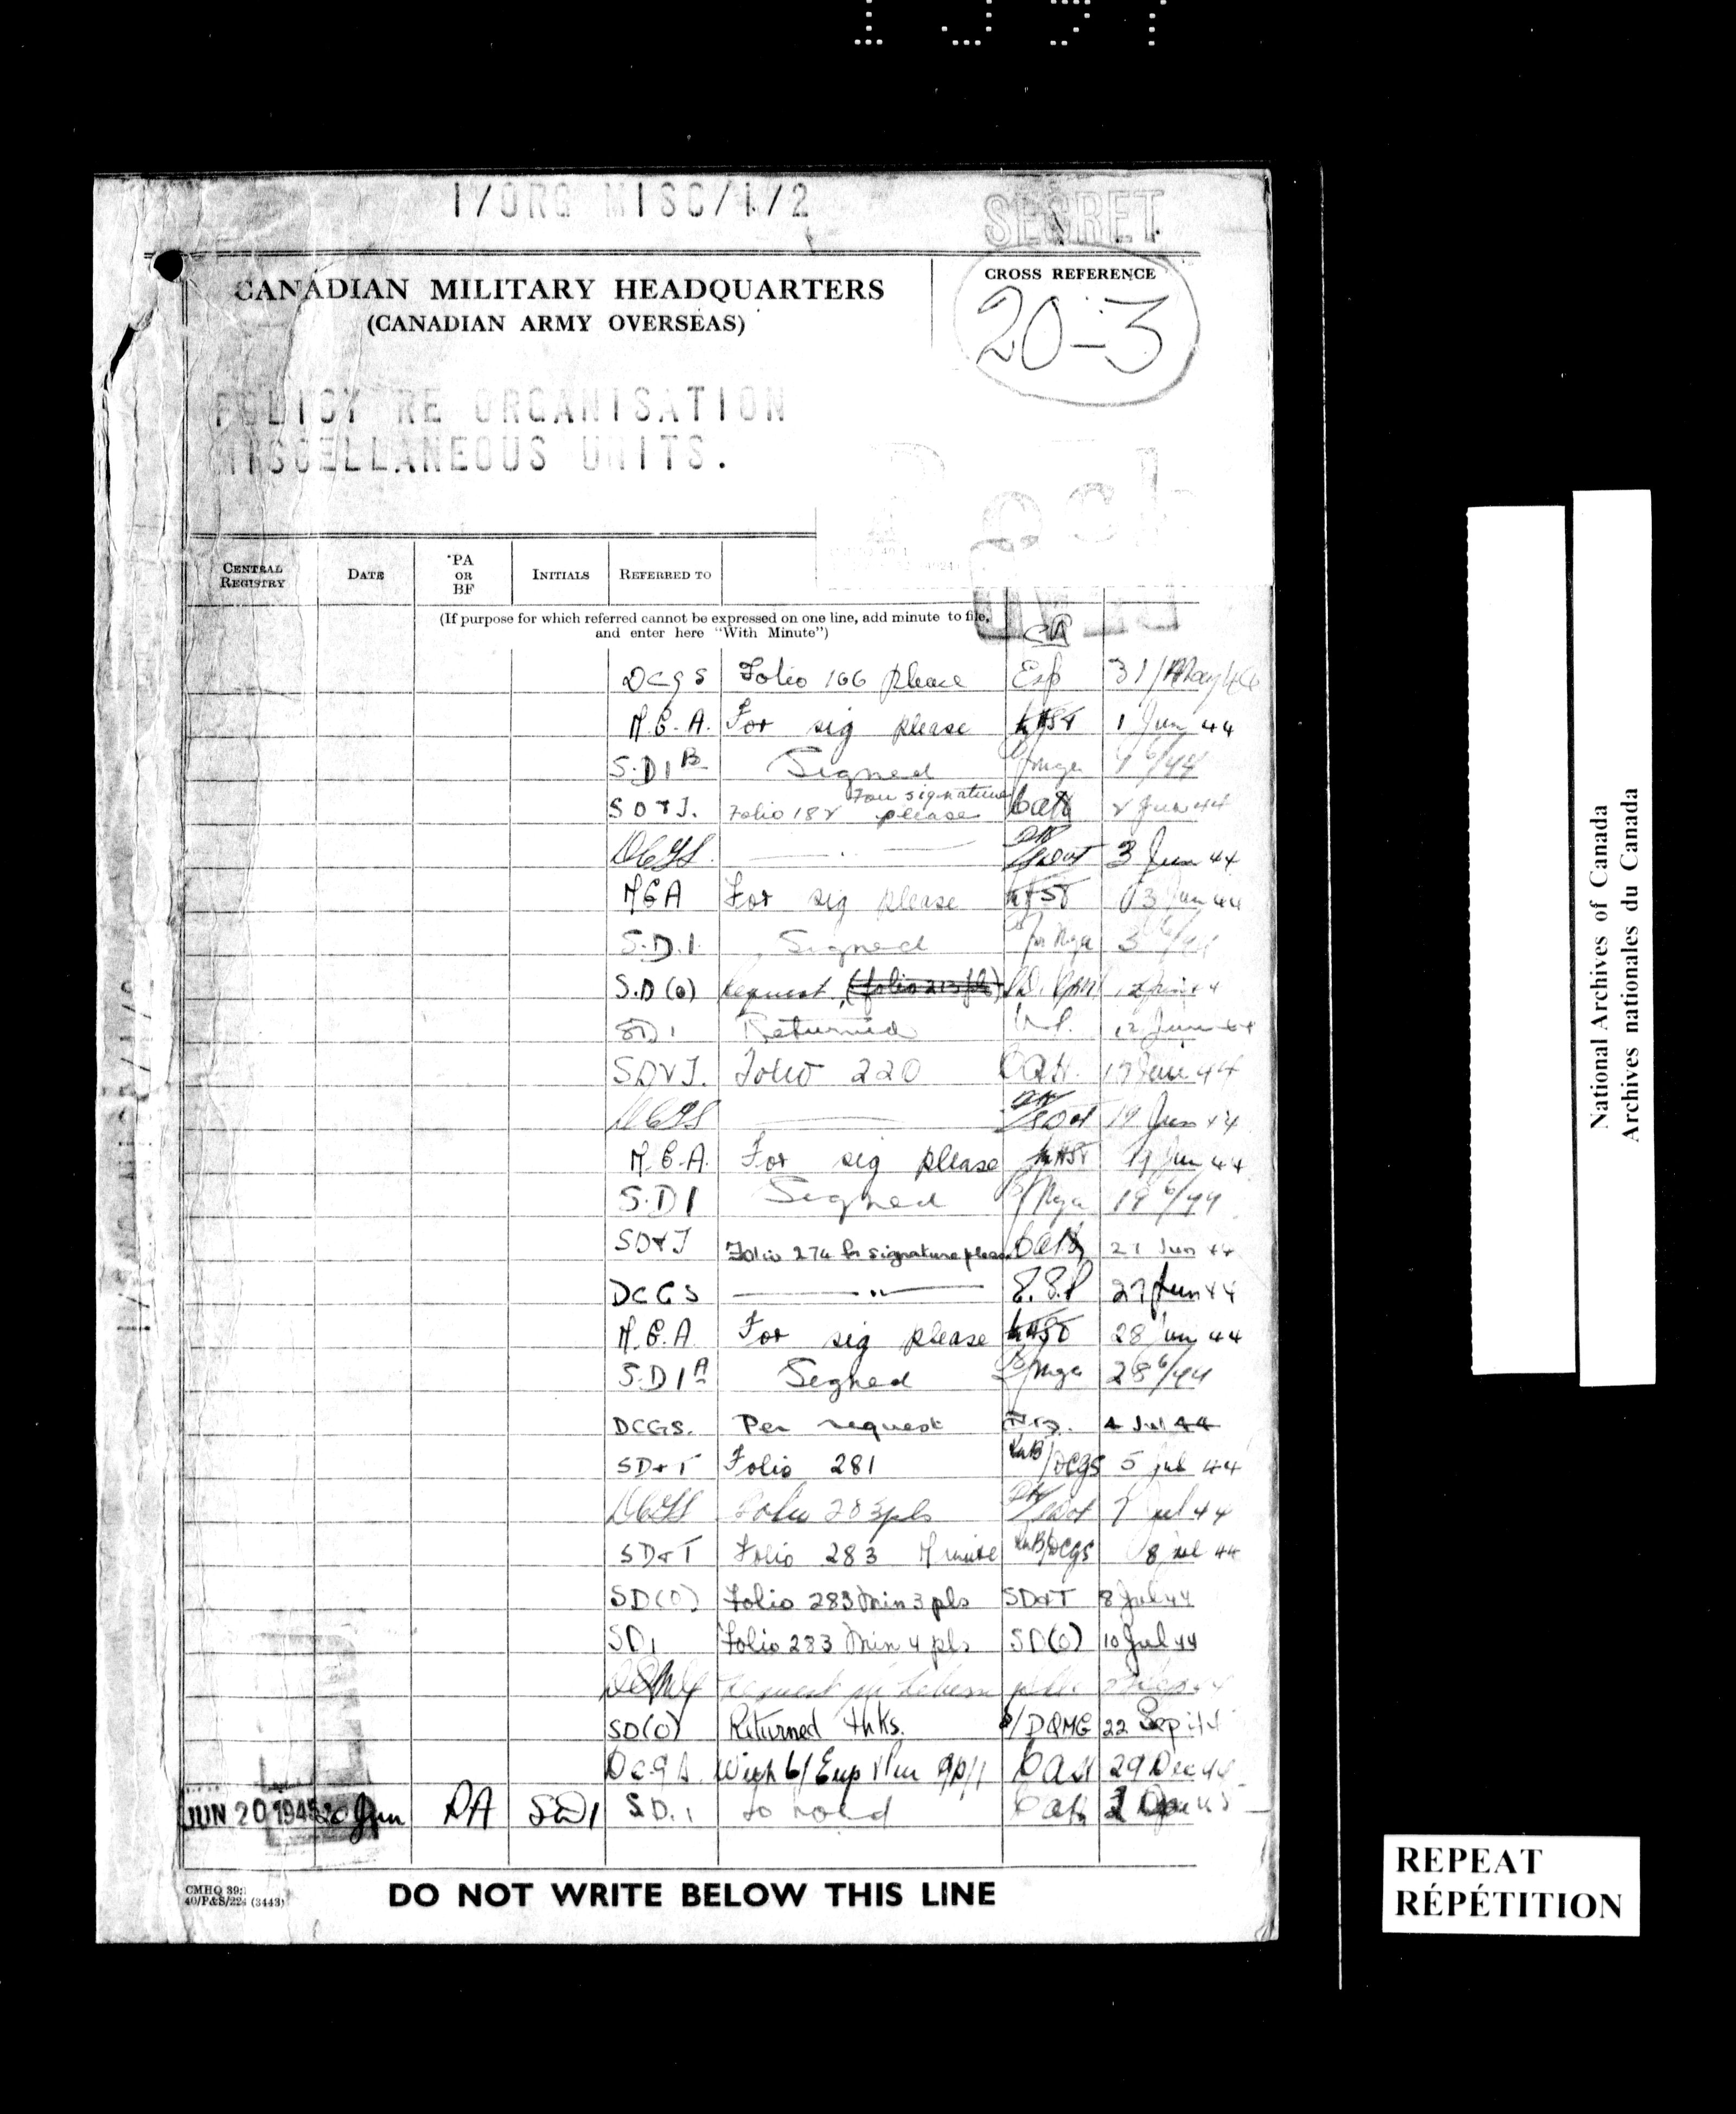 1/ORG MISC/1/2
SECRET
CANADIAN MILITARY HEADQUARTERS
(CANADIAN ARMY OVERSEAS)
CROSS REFERENCE
20-3
POLICY RE ORGANISATION
MISCELLANEOUS UNITS.
CENTRAL REGISTRY DATE PA OR BF INITIALS REFERRED TO
(If purpose for which referred cannot be expressed on one line, add minute to file,
and enter here "With Minute")
DCGS Folio 166 please 31/May/44
M.G.A. For sig please 1 Jun 44
S.D1B Signed 1 6/44
SD&T. Folio 182 For signature please 2 Jun 44
DCGS 3 Jun 44
MGA For sig please 3 Jun 44
S.D.1. Signed 3 6/44
S.D(0) Request (folio 213 pls) 12 Jun 44
SD1 Returned 12 Jun 44
SD&T. Folio 220 17 June 44
DCGS 19 Jun 44
M.G.A. For sig please 19 Jun 44
S.D1 Signed 19 6/44
SD&T Folio 274 for signature please 27 Jun 44
DCGS — " — 27 Jun 44
M.G.A For sig please 28 Jun 44
S.D1A Signed 28 6/44
DCGS. Per request 4 Jul 44
SD&T Folio 281 /DCGS 5 Jul 44
DCGS Folio 283 pls 7 Jul 44
SD&T Folio 283 Minute /DCGS 8 Jul 44
SD(0) Folio 283 Min 3 pls SD&T 8 Jul 44
SD1 Folio 283 Min 4 pls SD(0) 10 Jul 44
request
SD(0) Returned thks. /DQMG 22 Sep 44
DCGS. With 6/ 29 Dec 44
JUN 20 1945 20 Jun PA SD1 S.D.1 to hold
CMHQ 39
40/P&S/224 (3443)
DO NOT WRITE BELOW THIS LINE
National Archives of Canada
Archives nationales du Canada
REPEAT
RÉPÉTITION